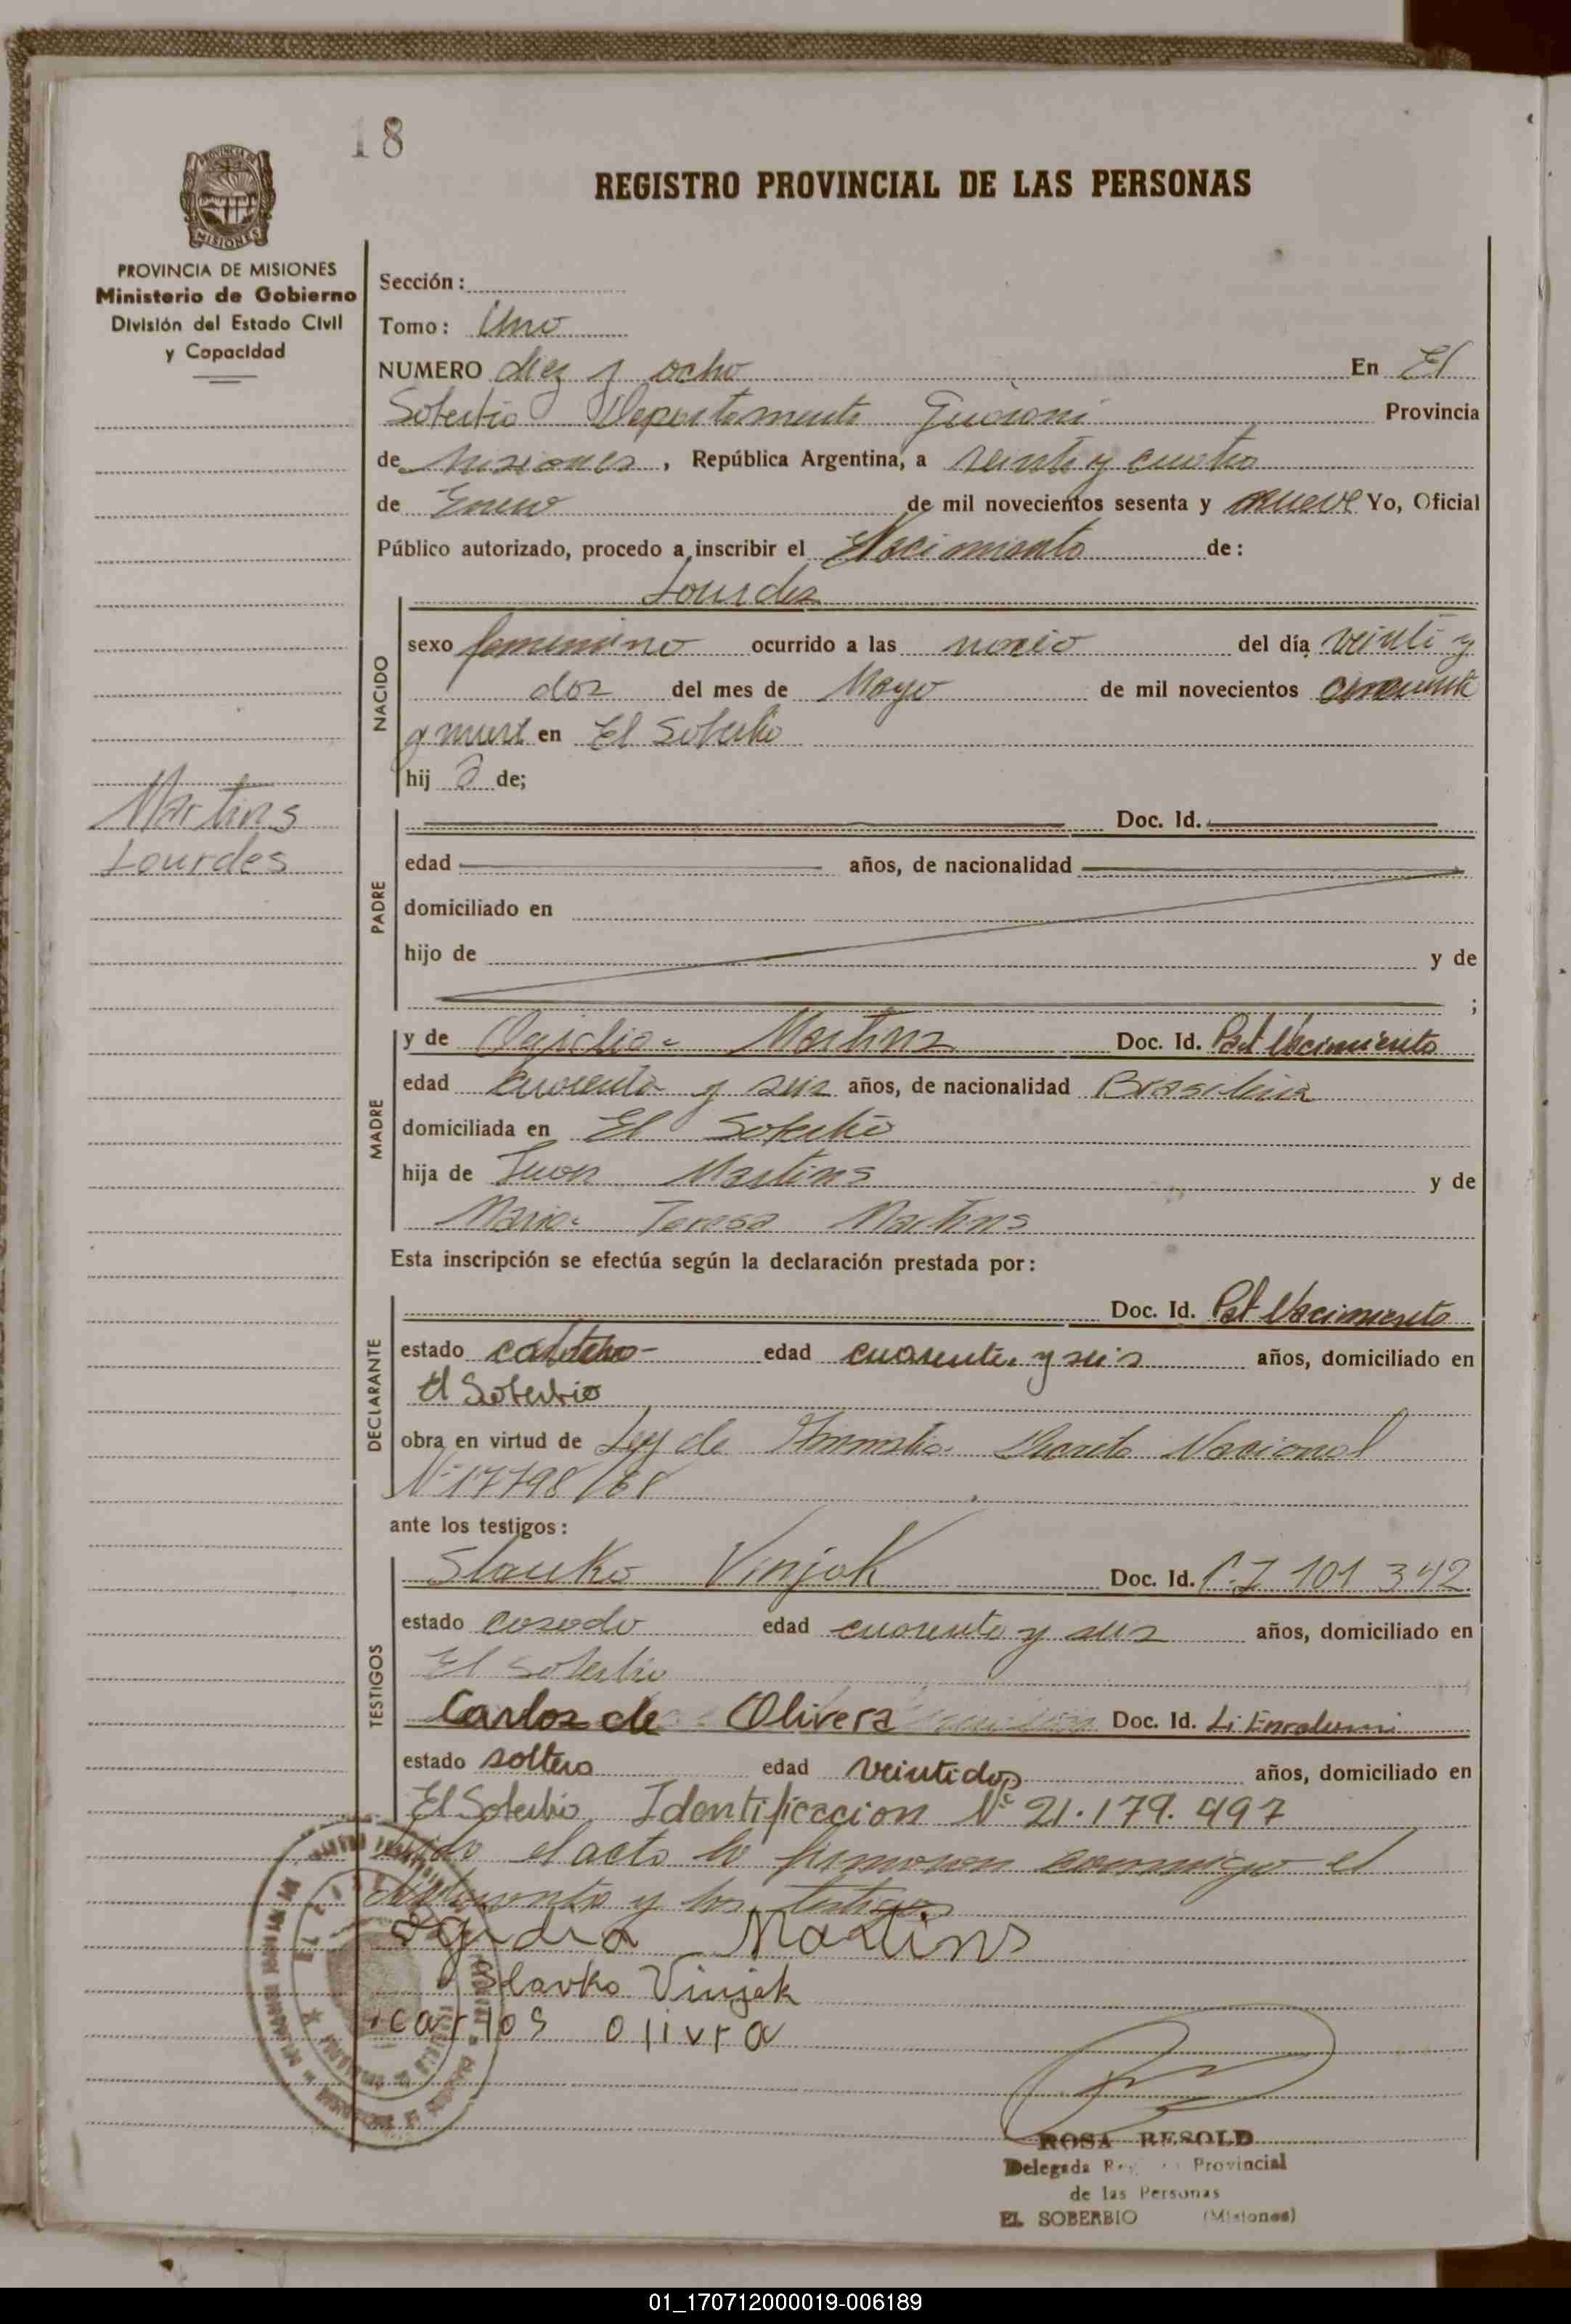 18
REGISTRO PROVINCIAL DE LAS PERSONAS
PROVINCIA DE MISIONES
Ministerio de Gobierno
División del Estado Civil
y Capacidad
Sección:
Tomo: Uno
NUMERO diez y ocho En El
Soberbio Departamento Guarani Provincia
de Misiones, República Argentina, a veinte y cuatro
de Enero de mil novecientos sesenta y nueve Yo, Oficial
Público autorizado, procedo a inscribir el Nacimiento de:
Lourdes
NACIDO
sexo femenino ocurrido a las del día veinti y
dos del mes de Mayo de mil novecientos cincuenta
y nueve en El Soberbio
hij a de;
Martins
Lourdes
PADRE
Doc. Id.
edad años, de nacionalidad
domiciliado en
hijo de y de
;
MADRE
y de Martins Doc. Id. Part Nacimiento
edad cuarenta y seis años, de nacionalidad Brasileña
domiciliada en El Soberbio
hija de Juan Martins y de
Maria Teresa Martins
Esta inscripción se efectúa según la declaración prestada por:
DECLARANTE
Doc. Id. Part Nacimiento
estado edad cuarenta y seis años, domiciliado en
El Soberbio
obra en virtud de Ley de Amnistia Decreto Nacional
Nº 17798/68
ante los testigos:
TESTIGOS
Slauko Vinjak Doc. Id. C.I 101 342
estado casado edad cuarenta y seis años, domiciliado en
El Soberbio
Carlos de Olivera Doc. Id. Li Enrolami
estado soltero edad veintidos años, domiciliado en
El Soberbio Identificacion Nº 21.179.497
Leido el acta lo firmaron conmigo el
declarante y los testigos
egidia Martins
Slavko Vinjak
carlos olivra
ROSA RESOLD
Delegada Provincial
de las Personas
EL SOBERBIO (Misiones)
01_170712000019-006189